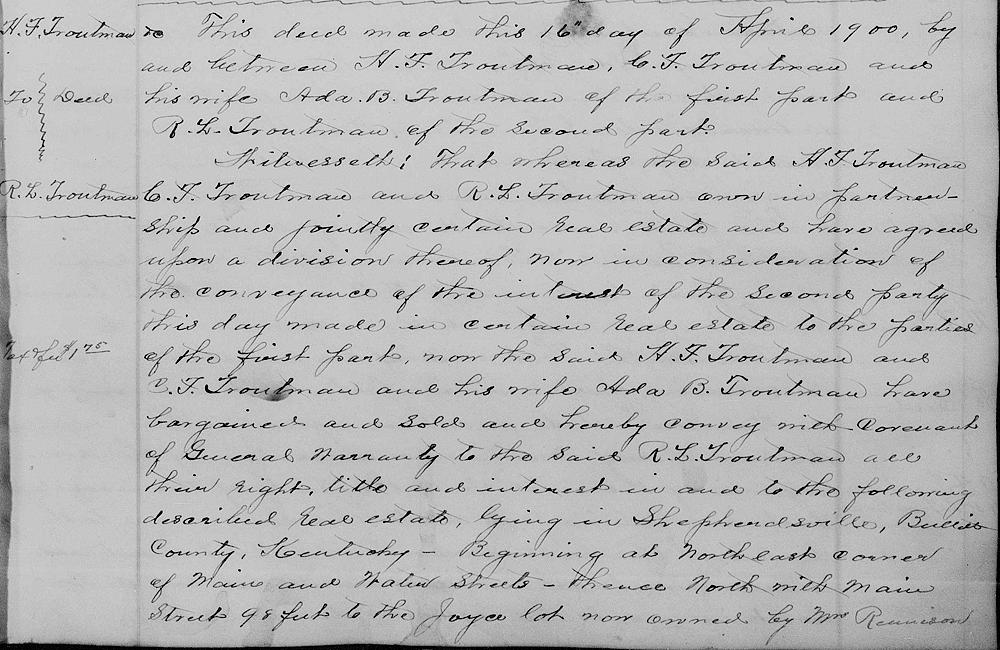 H. F. Troutman &c
To Deed
R. L. Troutman
Tax & fee $1.75
This deed made this 16" day of April 1900, by
and between H. F. Troutman, C. F. Troutman and
his wife Ada. B. Troutman of the first part and
R. L. Troutman of the second part.
Witnesseth: That whereas the said H F Troutman
C. F. Troutman and R. L. Troutman own in partner-
ship and jointly certain real estate and have agreed
upon a division thereof, now in consideration of
the conveyance of the interest of the second party
this day made in certain real estate to the parties
of the first part, now the said H. F. Troutman and
C. F. Troutman and his wife Ada B. Troutman have
bargained and sold and hereby convey with Covenant
of General Warranty to the said R. L. Troutman all
their right, title and interest in and to the following
described real estate, lying in Shepherdsville, Bullitt
County, Kentucky - Beginning at North east corner
of Main and Water Streets - thence North with Main
Street 98 feet to the Joyce lot now owned by Mrs Rennison